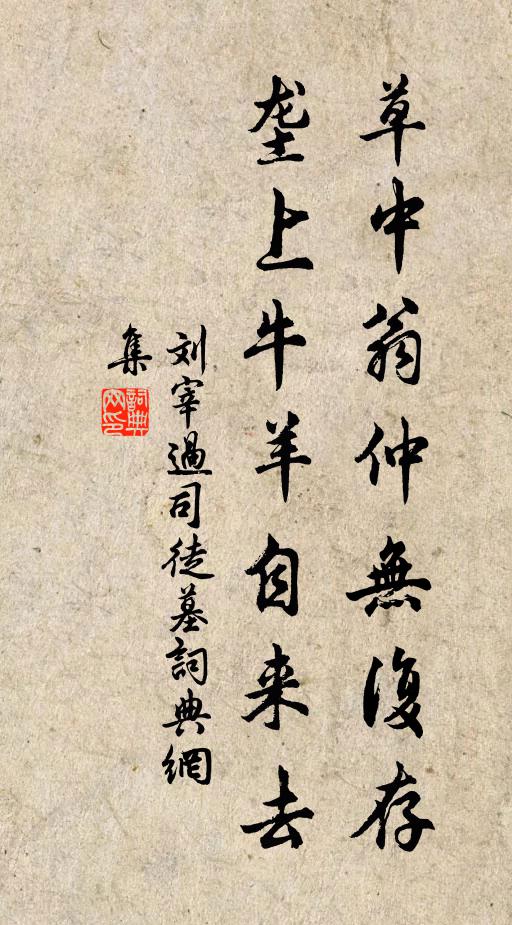 草中翁仲無復存
垄上牛羊自来去
刘宰過司徒墓詞典網
集
詞典
网印